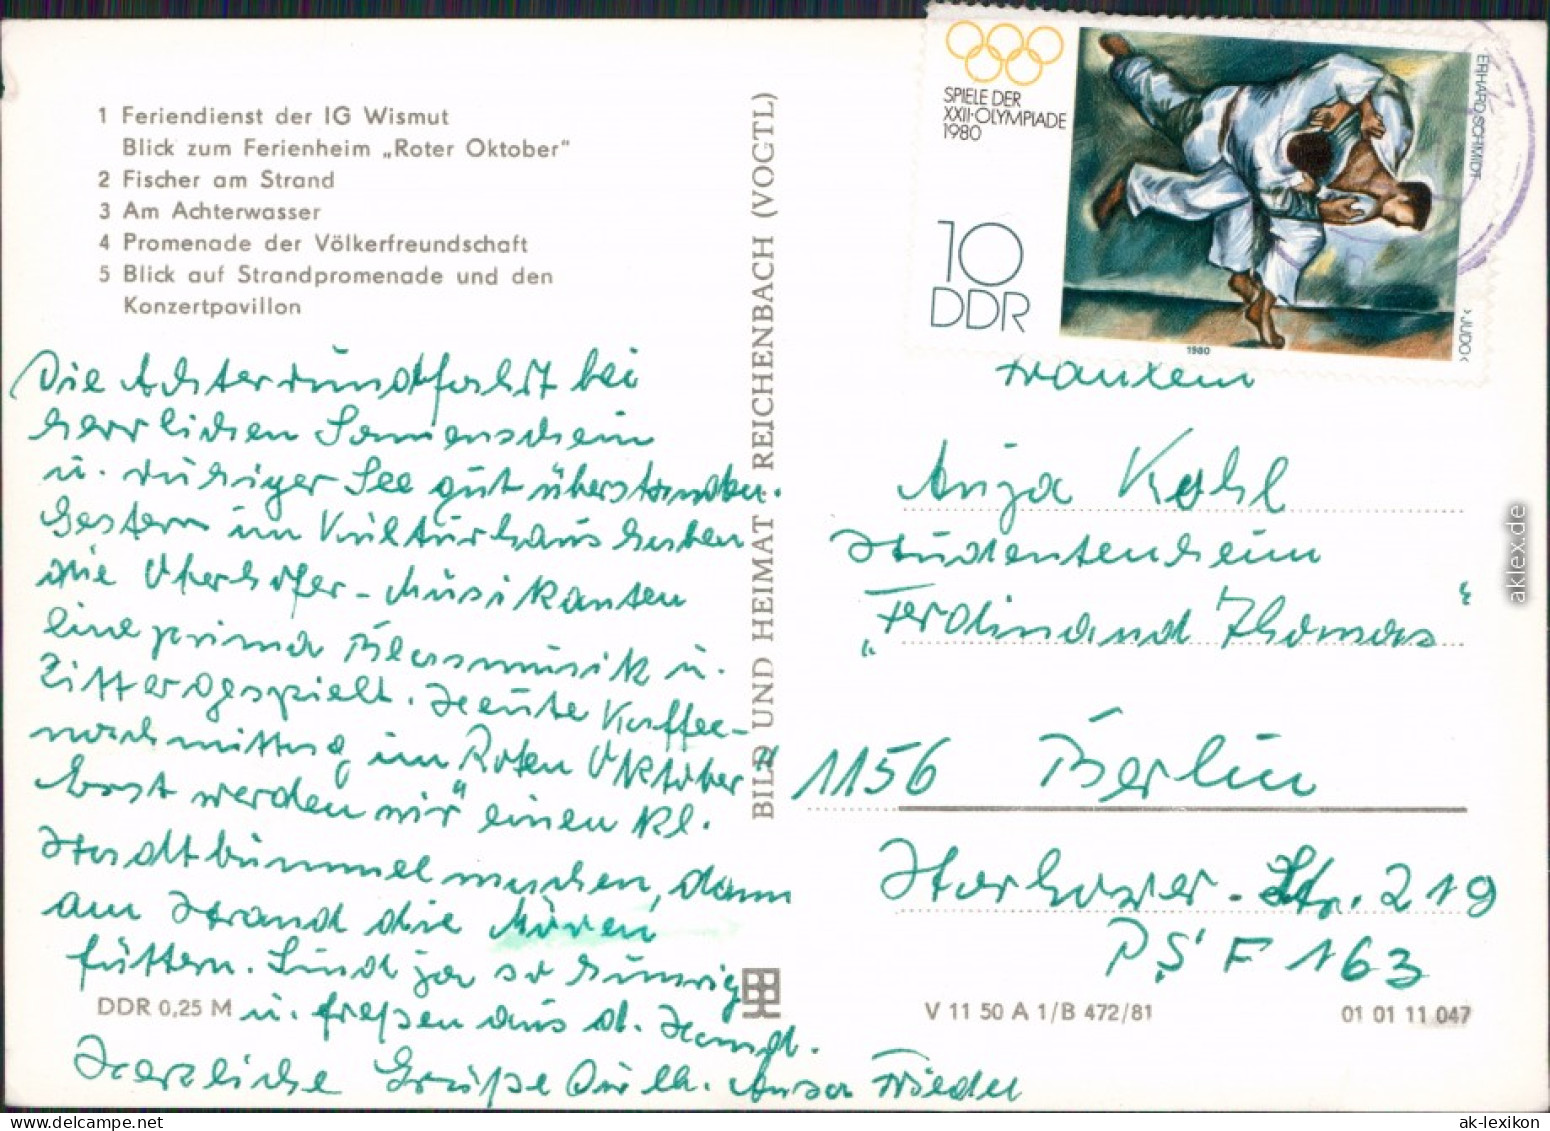 1 Feriendienst der IG Wismut
Blick zum Ferienheim „Roter Oktober"
2 Fischer am Strand
3 Am Achterwasser
4 Promenade der Völkerfreundschaft
5 Blick auf Strandpromenade und den
Konzertpavillon
Die Achterrundfahrt bei
herrlichen Sonnenschein
u. ruhiger See gut überstanden.
Gestern im Kulturhaus haben
die Oberhofer-Musikanten
eine prima Blasmusik u.
Zitter gespielt. Heute Kaffee-
nachmittag im „Roten Oktober"
Erst werden wir einen kl.
Stadtbummel machen, dann
am Strand die Möven
füttern. Sind ja so hungrig
u. freßen aus d. Hand.
Herzliche Grüße
Frieder
DDR 0,25 M
BILD UND HEIMAT REICHENBACH (VOGTL)
SPIELE DER
XXII·OLYMPIADE
1980
10
DDR
ERHARD SCHMIDT
›JUDO‹
1980
Anja Kohl
Studentenheim
„Ferdinand Thomas"
1156 Berlin
Storkower-Str. 219
PSF 163
V 11 50 A 1/B 472/81
01 01 11 047
aklex.de
ak-lexikon